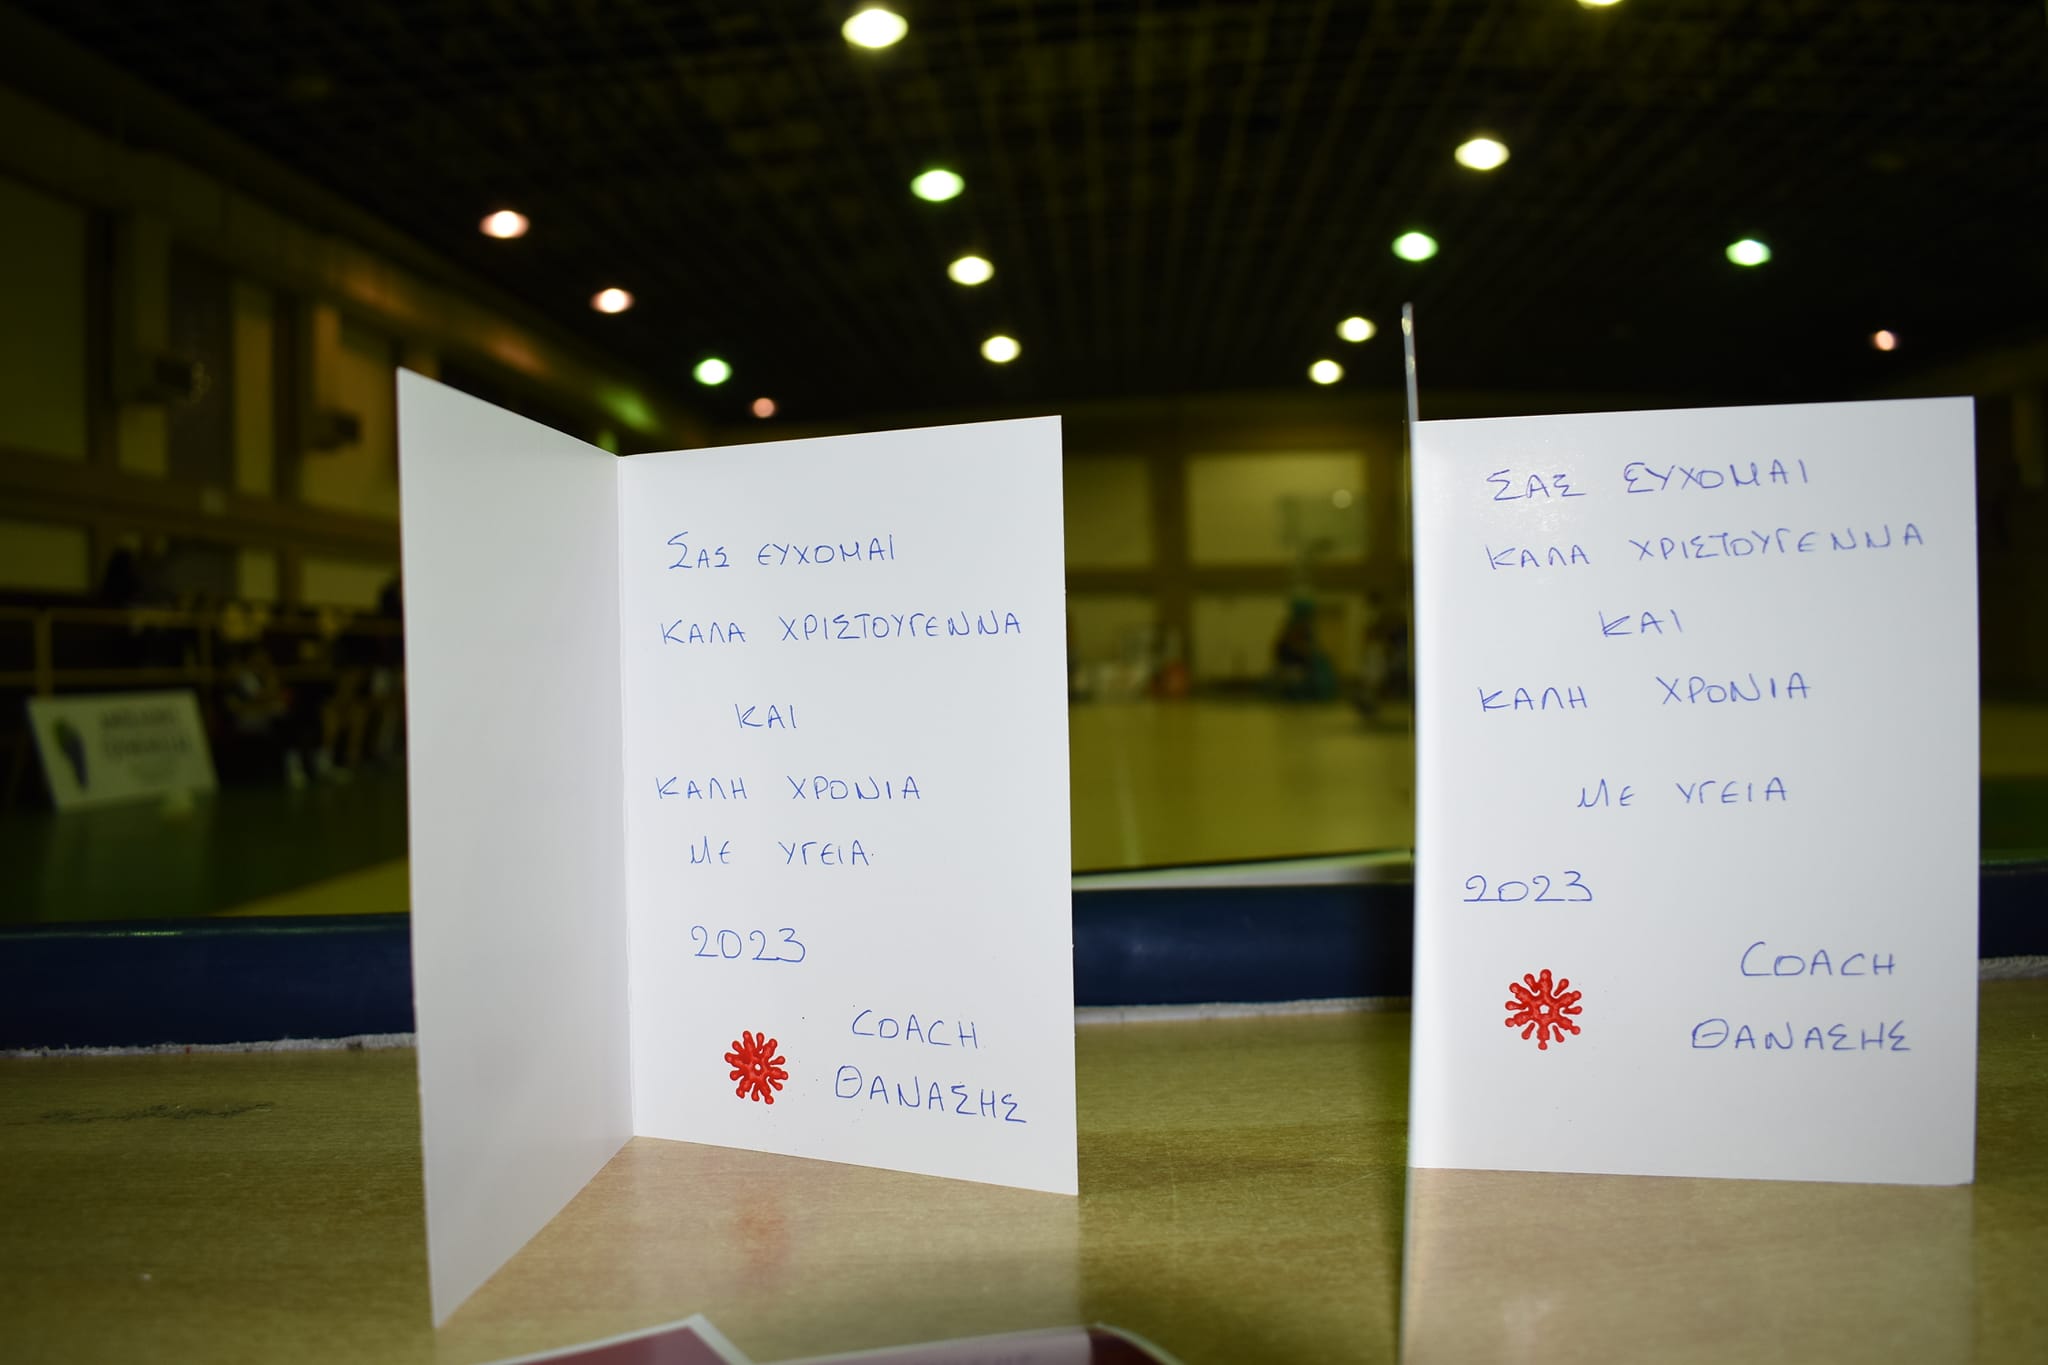 ΣΑΣ ΕΥΧΟΜΑΙ
ΚΑΛΑ ΧΡΙΣΤΟΥΓΕΝΝΑ
ΚΑΙ
ΚΑΛΗ ΧΡΟΝΙΑ
ΜΕ ΥΓΕΙΑ
2023
COACH
ΘΑΝΑΣΗΣ
ΣΑΣ ΕΥΧΟΜΑΙ
ΚΑΛΑ ΧΡΙΣΤΟΥΓΕΝΝΑ
ΚΑΙ
ΚΑΛΗ ΧΡΟΝΙΑ
ΜΕ ΥΓΕΙΑ
2023
COACH
ΘΑΝΑΣΗΣ